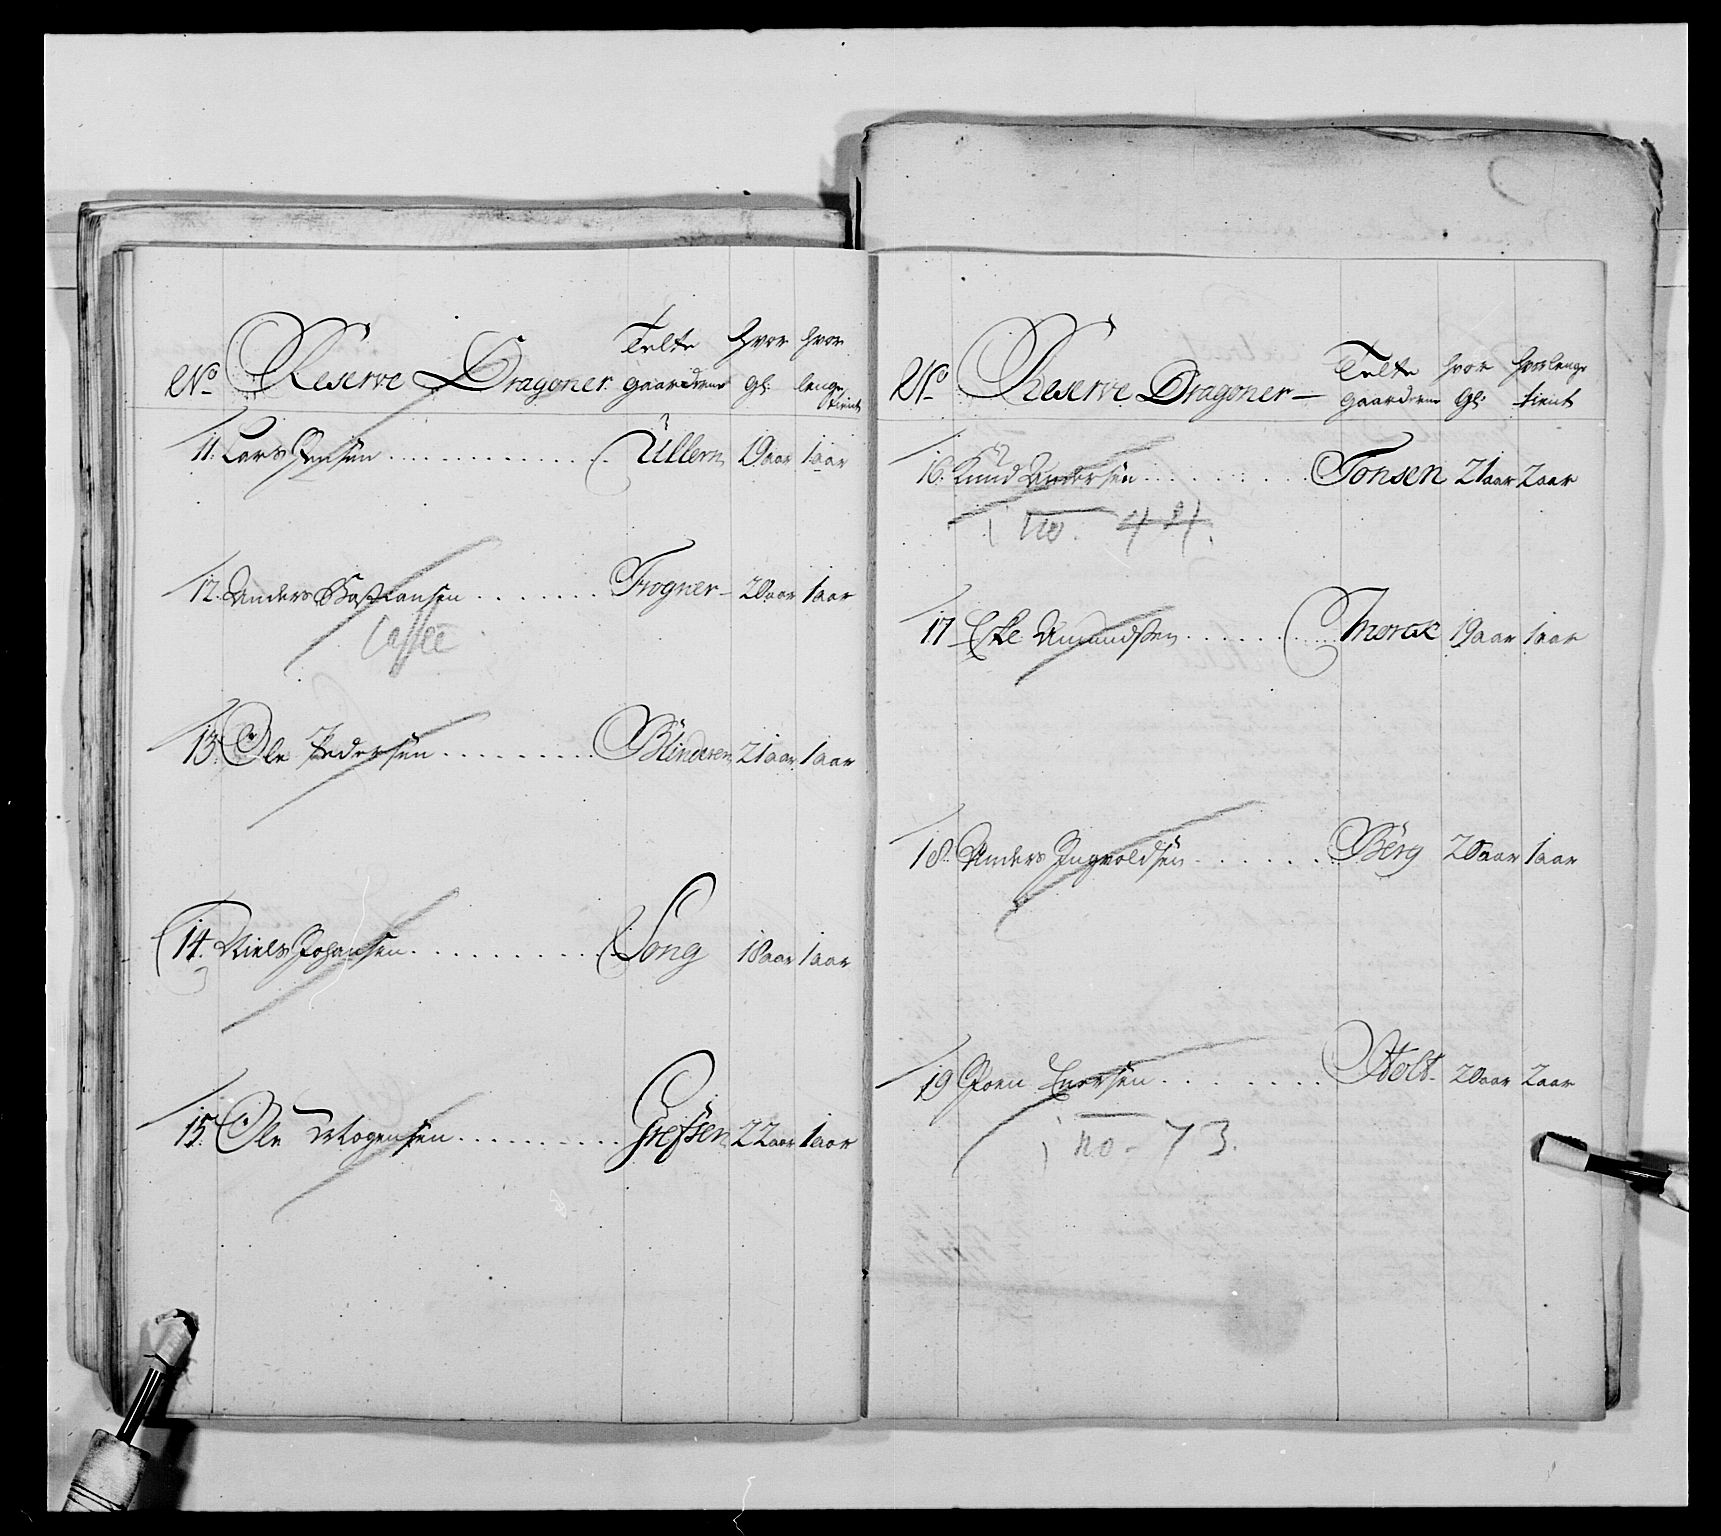 No Reserve Dragoner Telte gaardene Hvor gl: hvor lenge tient
11. Lars Jensen Ullern 19 aar 1 aar
12. Anders Bastiansen Frogner 20 aar 1 aar
13. Ole Pedersen Blinderen 21 aar 1 aar
14. Niels Johansen Song 18 aar 1 aar
15. Ole Mogensen Grefsen 22 aar 1 aar
No Reserve Dragoner Telte gaardene hvor gl: hvor lenge tient
16. Knud Andersen Tonsen 21 aar 2 aar
i no. 44.
17 Amundsen 19 aar 1 aar
18. Anders Ingvoldsen Berg 20 aar 1 aar
19 Joen Enersen Holt 20 aar 2 aar
i no - 73.